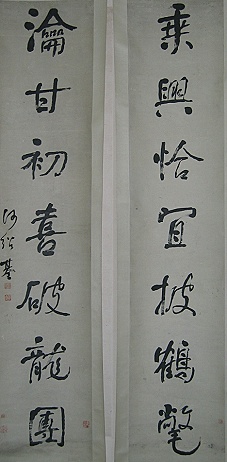 乘興恰宜披鶴氅
瀹甘初喜破龍團
何紹基